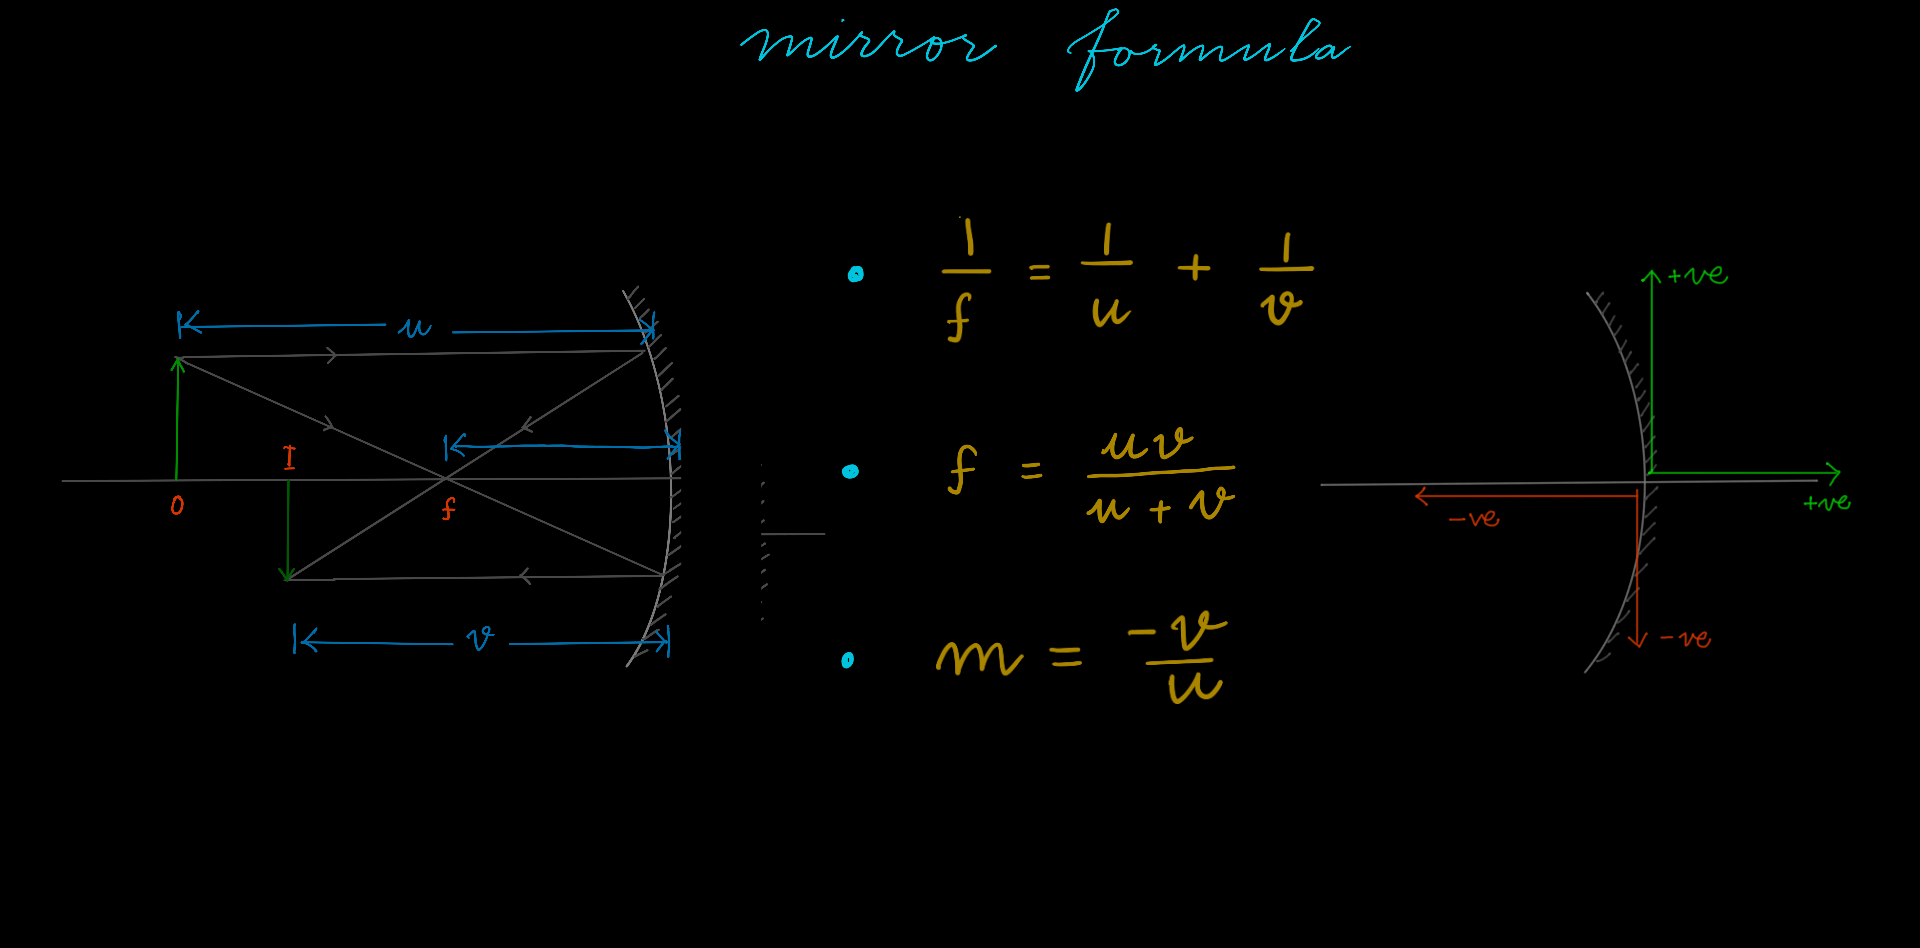 mirror formula
u
I
O
f
v
1/f = 1/u + 1/v
f = uv/u + v
m = -v/u
+ve
+ve
-ve
-ve